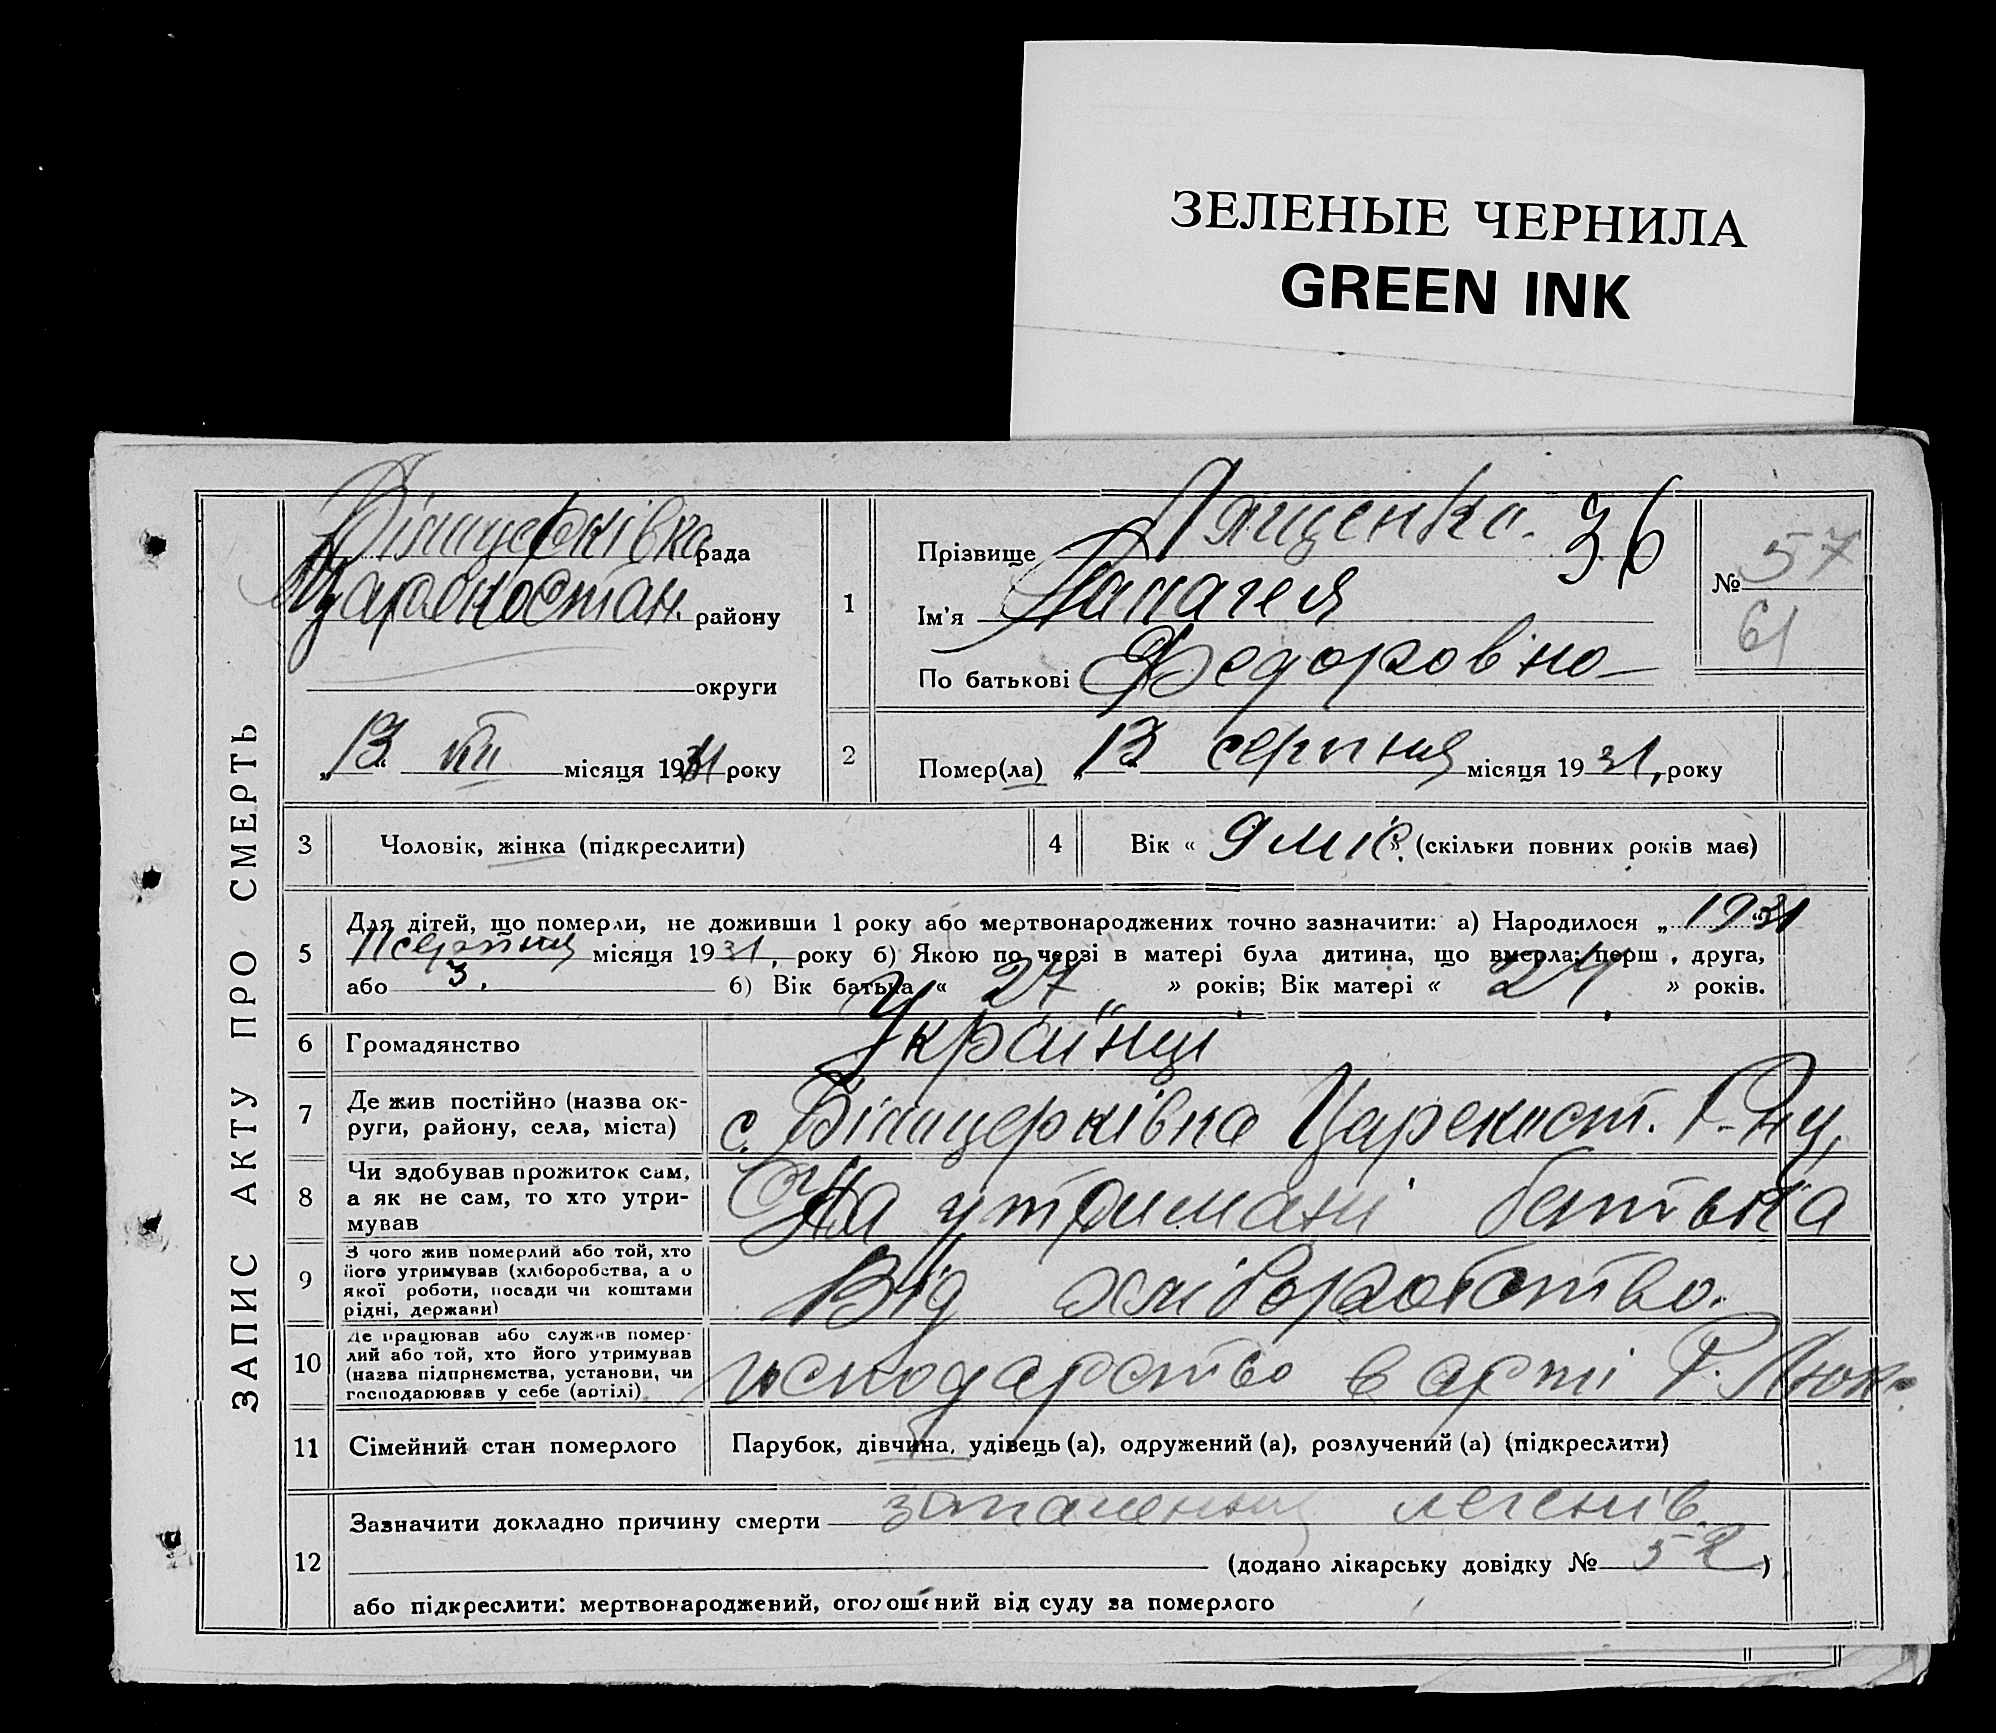 ЗЕЛЕНЫЕ ЧЕРНИЛА
GREEN INK
ЗАПИС АКТУ ПРО СМЕРТЬ
Білицерківка рада
району
округи
„13“ VIII місяця 1931 року
1
Прізвище Лященко. 36
Ім'я
По батькові Федоровна
№ 57
61
2
Помер(ла) „13“ серпня місяця 1931, року
3 Чоловік, жінка (підкреслити)
4 Вік « 9 міс. » (скільки повних років має)
5 Для дітей, що померли, не доживши 1 року або мертвонароджених точно зазначити: а) Народилося „ 1931
11 серпня місяця 1931, року б) Якою по черзі в матері була дитина, що вмерла: перш , друга,
або 3. б) Вік батька « 27 » років; Вік матері « 24 » років.
6 Громадянство Українці
7 Де жив постійно (назва ок-
руги, району, села, міста)
с. Білицерківка Царекост. Р-ну
8 Чи здобував прожиток сам,
а як не сам, то хто утри-
мував
На утримані батька
9 З чого жив померлий або той, хто
його утримував (хліборобства, а о
якої роботи, посади чи коштами
рідні, держави)
Від хліборобство.
10 Де працював або служив помер-
лий або той, хто його утримував
(назва підприємства, установи, чи
господарював у себе (артілі)
господарство в арті Р. Люк
11 Сімейний стан померлого Парубок, дівчина, удівець (а), одружений (а), розлучений (а) (підкреслити)
12 Зазначити докладно причину смерти запаления легенів.
(додано лікарську довідку № 52)
або підкреслити: мертвонароджений, оголошений від суду за померлого